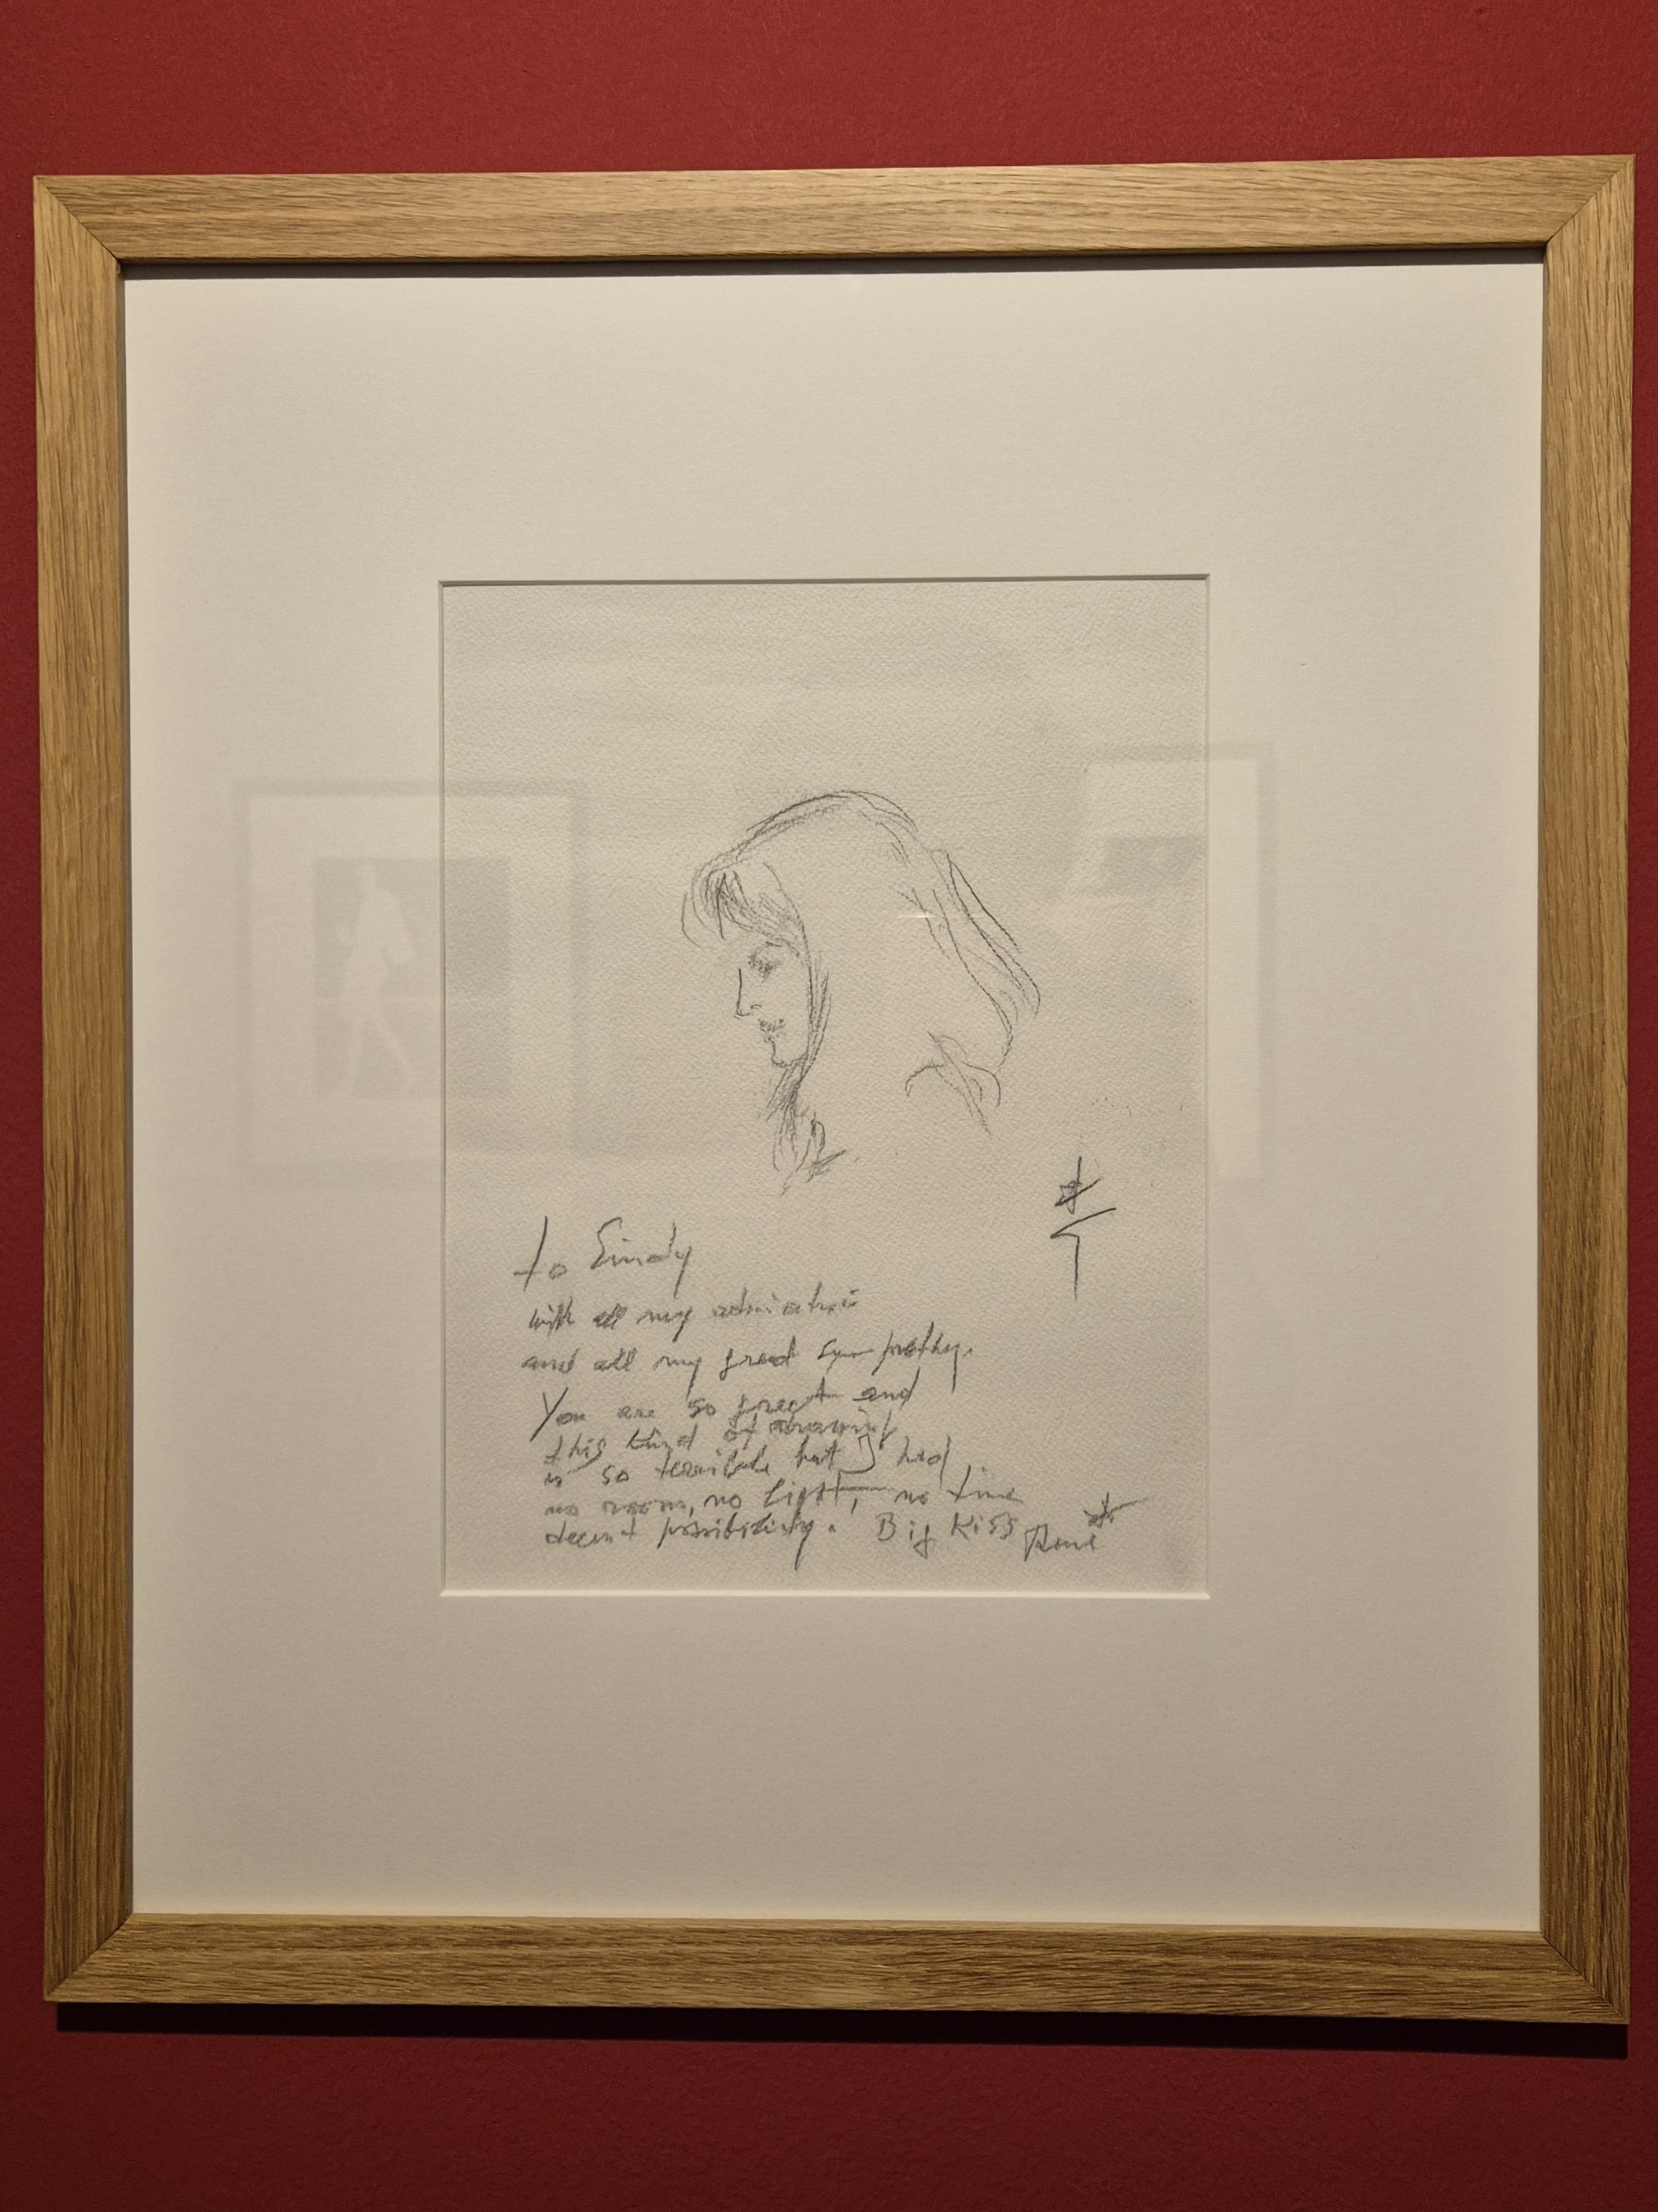 to Cindy
with all my admiration
and all my great sympathy.
You are so great and
this kind of drawing
is so terrible but I had
no room, no light, no time
decent possibility. Big Kiss René